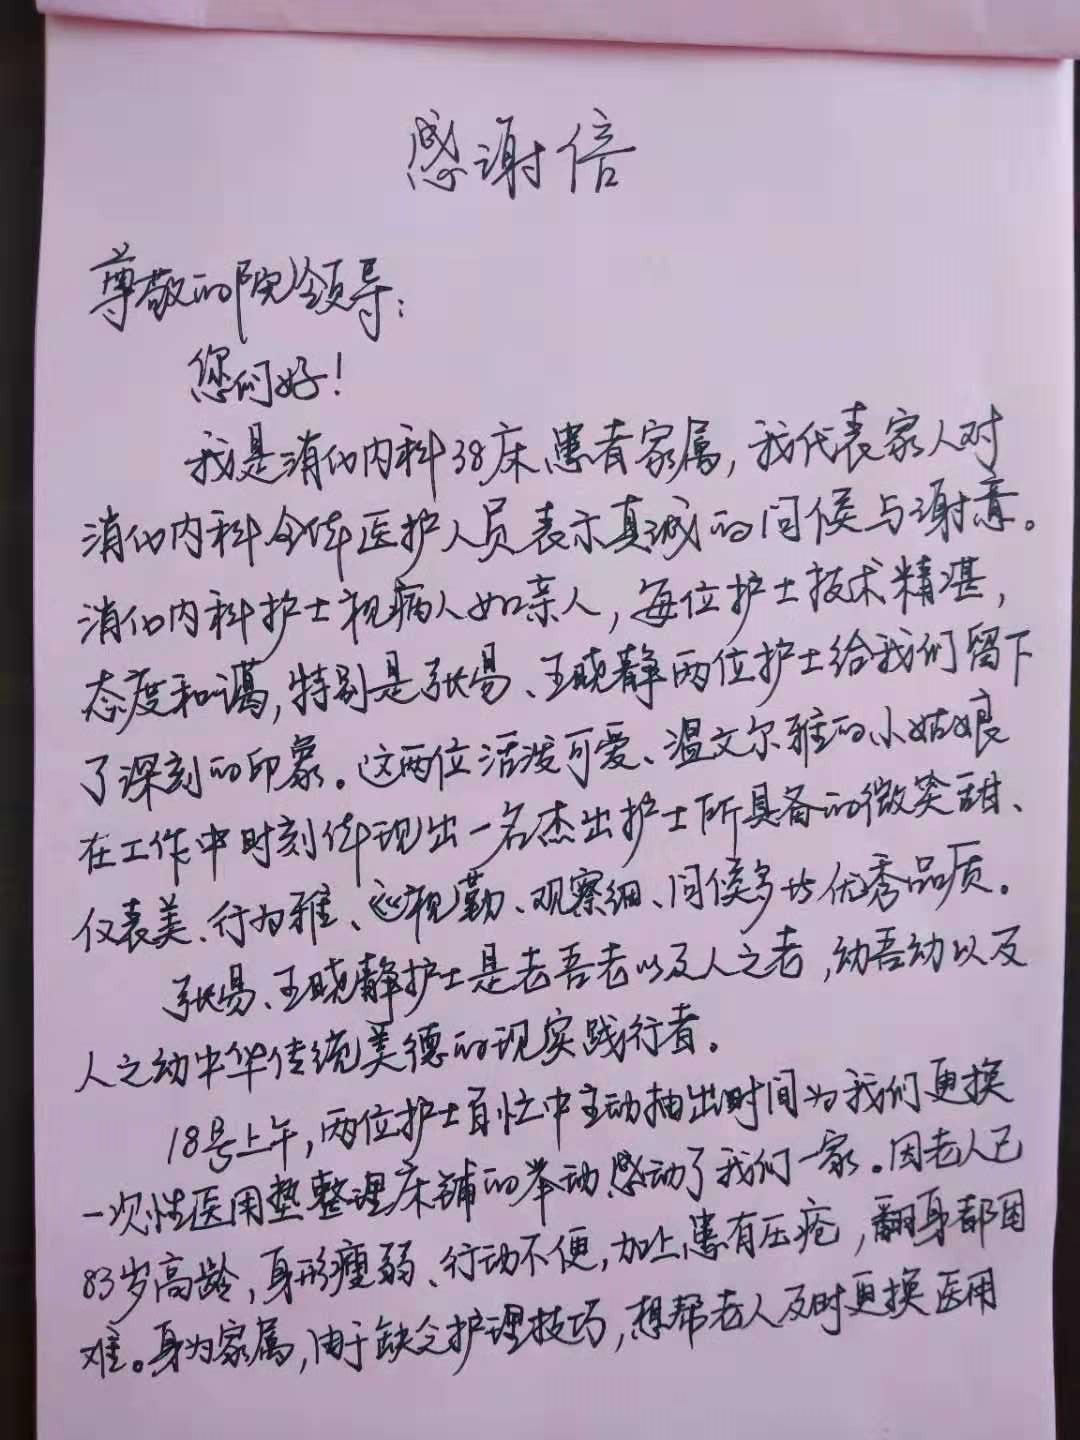 感谢信
尊敬的院领导：
您们好！
我是消化内科38床患者家属，我代表家人对
消化内科全体医护人员表示真诚的问候与谢意。
消化内科护士视病人如亲人，每位护士技术精湛，
态度和谒，特别是张易、王晓静两位护士给我们留下
了深刻的印象。这两位活泼可爱、温文尔雅的小姑娘
在工作中时刻体现出一名杰出护士所具备的微笑甜、
仪表美、行为雅、巡视勤、观察细、问候多等优秀品质。
张易、王晓静护士是老吾老以及人之老，幼吾幼以及
人之幼中华传统美德的现实践行者。
18号上午，两位护士百忙中主动抽出时间为我们更换
一次性医用垫整理床铺的举动，感动了我们一家。因老人已
83岁高龄，身形瘦弱、行动不便，加上患有压疮，翻身都困
难。身为家属，由于缺乏护理技巧，想帮老人及时更换医用